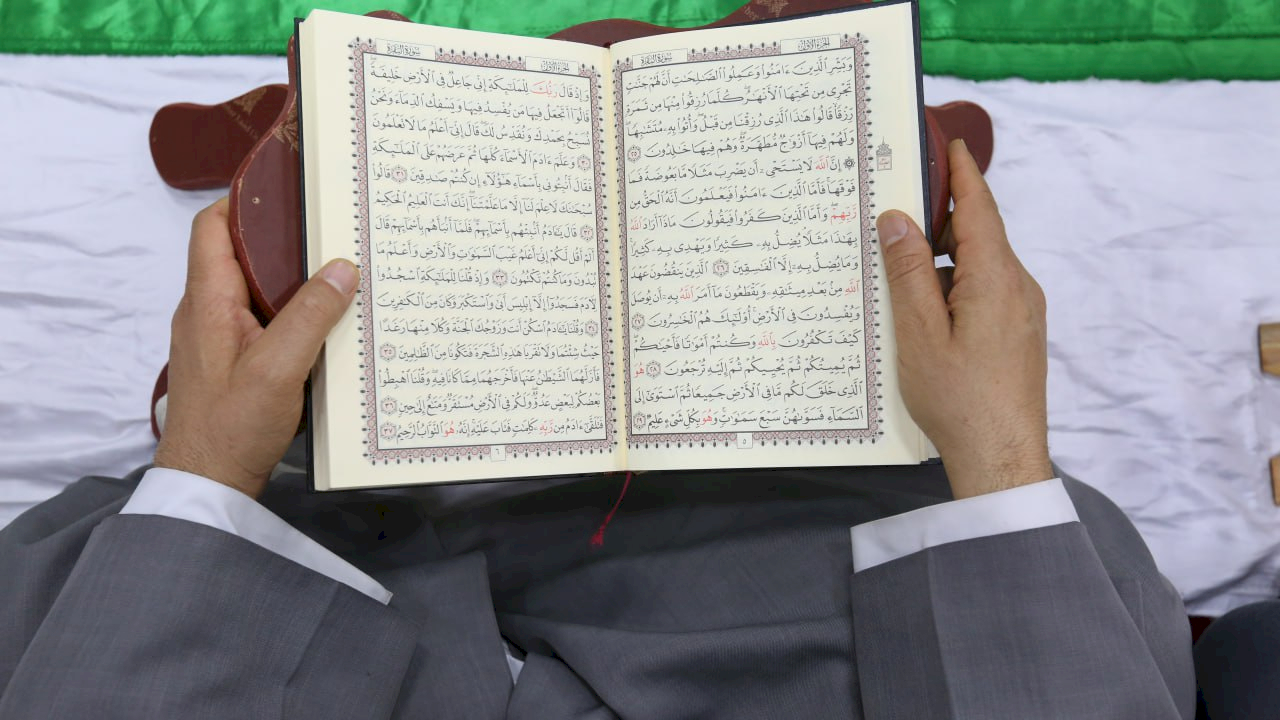 سورة البقرة
الجزء الأول
وَبَشِّرِ الَّذِينَ ءَامَنُوا وَعَمِلُوا الصَّالِحَاتِ أَنَّ لَهُمْ جَنَّاتٍ
تَجْرِي مِن تَحْتِهَا الْأَنْهَارُ كُلَّمَا رُزِقُوا مِنْهَا مِن ثَمَرَةٍ
رِّزْقًا قَالُوا هَذَا الَّذِي رُزِقْنَا مِن قَبْلُ وَأُتُوا بِهِ مُتَشَابِهًا
وَلَهُمْ فِيهَا أَزْوَاجٌ مُّطَهَّرَةٌ وَهُمْ فِيهَا خَالِدُونَ ٢٥
۞ إِنَّ اللَّهَ لَا يَسْتَحْيِي أَن يَضْرِبَ مَثَلًا مَّا بَعُوضَةً فَمَا
فَوْقَهَا فَأَمَّا الَّذِينَ ءَامَنُوا فَيَعْلَمُونَ أَنَّهُ الْحَقُّ مِن
رَّبِّهِمْ وَأَمَّا الَّذِينَ كَفَرُوا فَيَقُولُونَ مَاذَا أَرَادَ اللَّهُ
بِهَذَا مَثَلًا يُضِلُّ بِهِ كَثِيرًا وَيَهْدِي بِهِ كَثِيرًا
وَمَا يُضِلُّ بِهِ إِلَّا الْفَاسِقِينَ ٢٦ الَّذِينَ يَنقُضُونَ عَهْدَ
اللَّهِ مِن بَعْدِ مِيثَاقِهِ وَيَقْطَعُونَ مَا أَمَرَ اللَّهُ بِهِ أَن يُوصَلَ
وَيُفْسِدُونَ فِي الْأَرْضِ أُولَئِكَ هُمُ الْخَاسِرُونَ ٢٧
كَيْفَ تَكْفُرُونَ بِاللَّهِ وَكُنتُمْ أَمْوَاتًا فَأَحْيَاكُمْ
ثُمَّ يُمِيتُكُمْ ثُمَّ يُحْيِيكُمْ ثُمَّ إِلَيْهِ تُرْجَعُونَ ٢٨ هُوَ
الَّذِي خَلَقَ لَكُم مَّا فِي الْأَرْضِ جَمِيعًا ثُمَّ اسْتَوَى إِلَى
السَّمَاءِ فَسَوَّاهُنَّ سَبْعَ سَمَاوَاتٍ وَهُوَ بِكُلِّ شَيْءٍ عَلِيمٌ ٢٩
٥
سورة البقرة
الجزء الأول
وَإِذْ قَالَ رَبُّكَ لِلْمَلَائِكَةِ إِنِّي جَاعِلٌ فِي الْأَرْضِ خَلِيفَةً
قَالُوا أَتَجْعَلُ فِيهَا مَن يُفْسِدُ فِيهَا وَيَسْفِكُ الدِّمَاءَ وَنَحْنُ
نُسَبِّحُ بِحَمْدِكَ وَنُقَدِّسُ لَكَ قَالَ إِنِّي أَعْلَمُ مَا لَا تَعْلَمُونَ
٣٠ وَعَلَّمَ ءَادَمَ الْأَسْمَاءَ كُلَّهَا ثُمَّ عَرَضَهُمْ عَلَى الْمَلَائِكَةِ
فَقَالَ أَنبِئُونِي بِأَسْمَاءِ هَؤُلَاءِ إِن كُنتُمْ صَادِقِينَ ٣١ قَالُوا
سُبْحَانَكَ لَا عِلْمَ لَنَا إِلَّا مَا عَلَّمْتَنَا إِنَّكَ أَنتَ الْعَلِيمُ الْحَكِيمُ
٣٢ قَالَ يَاآدَمُ أَنبِئْهُم بِأَسْمَائِهِمْ فَلَمَّا أَنبَأَهُم بِأَسْمَائِهِمْ قَالَ
أَلَمْ أَقُل لَّكُمْ إِنِّي أَعْلَمُ غَيْبَ السَّمَاوَاتِ وَالْأَرْضِ وَأَعْلَمُ مَا
تُبْدُونَ وَمَا كُنتُمْ تَكْتُمُونَ ٣٣ وَإِذْ قُلْنَا لِلْمَلَائِكَةِ اسْجُدُوا
لِآدَمَ فَسَجَدُوا إِلَّا إِبْلِيسَ أَبَى وَاسْتَكْبَرَ وَكَانَ مِنَ الْكَافِرِينَ
٣٤ وَقُلْنَا يَاآدَمُ اسْكُنْ أَنتَ وَزَوْجُكَ الْجَنَّةَ وَكُلَا مِنْهَا رَغَدًا
حَيْثُ شِئْتُمَا وَلَا تَقْرَبَا هَذِهِ الشَّجَرَةَ فَتَكُونَا مِنَ الظَّالِمِينَ ٣٥
فَأَزَلَّهُمَا الشَّيْطَانُ عَنْهَا فَأَخْرَجَهُمَا مِمَّا كَانَا فِيهِ وَقُلْنَا اهْبِطُوا
بَعْضُكُمْ لِبَعْضٍ عَدُوٌّ وَلَكُمْ فِي الْأَرْضِ مُسْتَقَرٌّ وَمَتَاعٌ إِلَى حِينٍ ٣٦
فَتَلَقَّى ءَادَمُ مِن رَّبِّهِ كَلِمَاتٍ فَتَابَ عَلَيْهِ إِنَّهُ هُوَ التَّوَّابُ الرَّحِيمُ ٣٧
٦